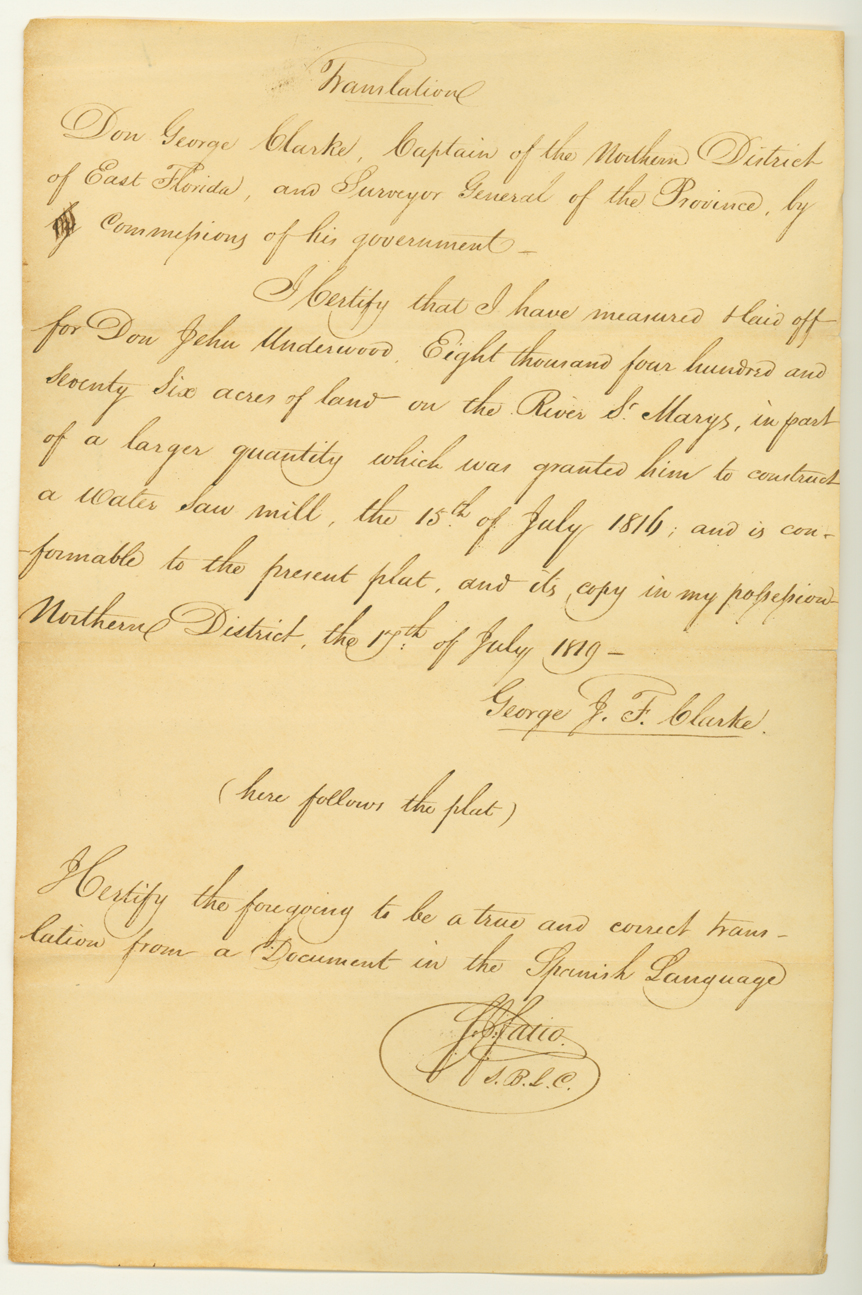 Translation
Don George Clarke, Captain of the Northern District
of East Florida, and Surveyor General of the Province, by
Commissions of his government —
I Certify that I have measured & laid off
for Don John Underwood, Eight thousand four hundred and
seventy six acres of land on the River St. Marys, in part
of a larger quantity which was granted him to construct
a Water Saw mill, the 15th of July 1816; and is con-
formable to the present plat, and its copy in my possession
Northern District, the 17th of July 1819 —
George J. F. Clarke.
(here follows the plat)
I Certify the foregoing to be a true and correct trans-
lation from a Document in the Spanish Language
Fatio.
S.B.L.C.